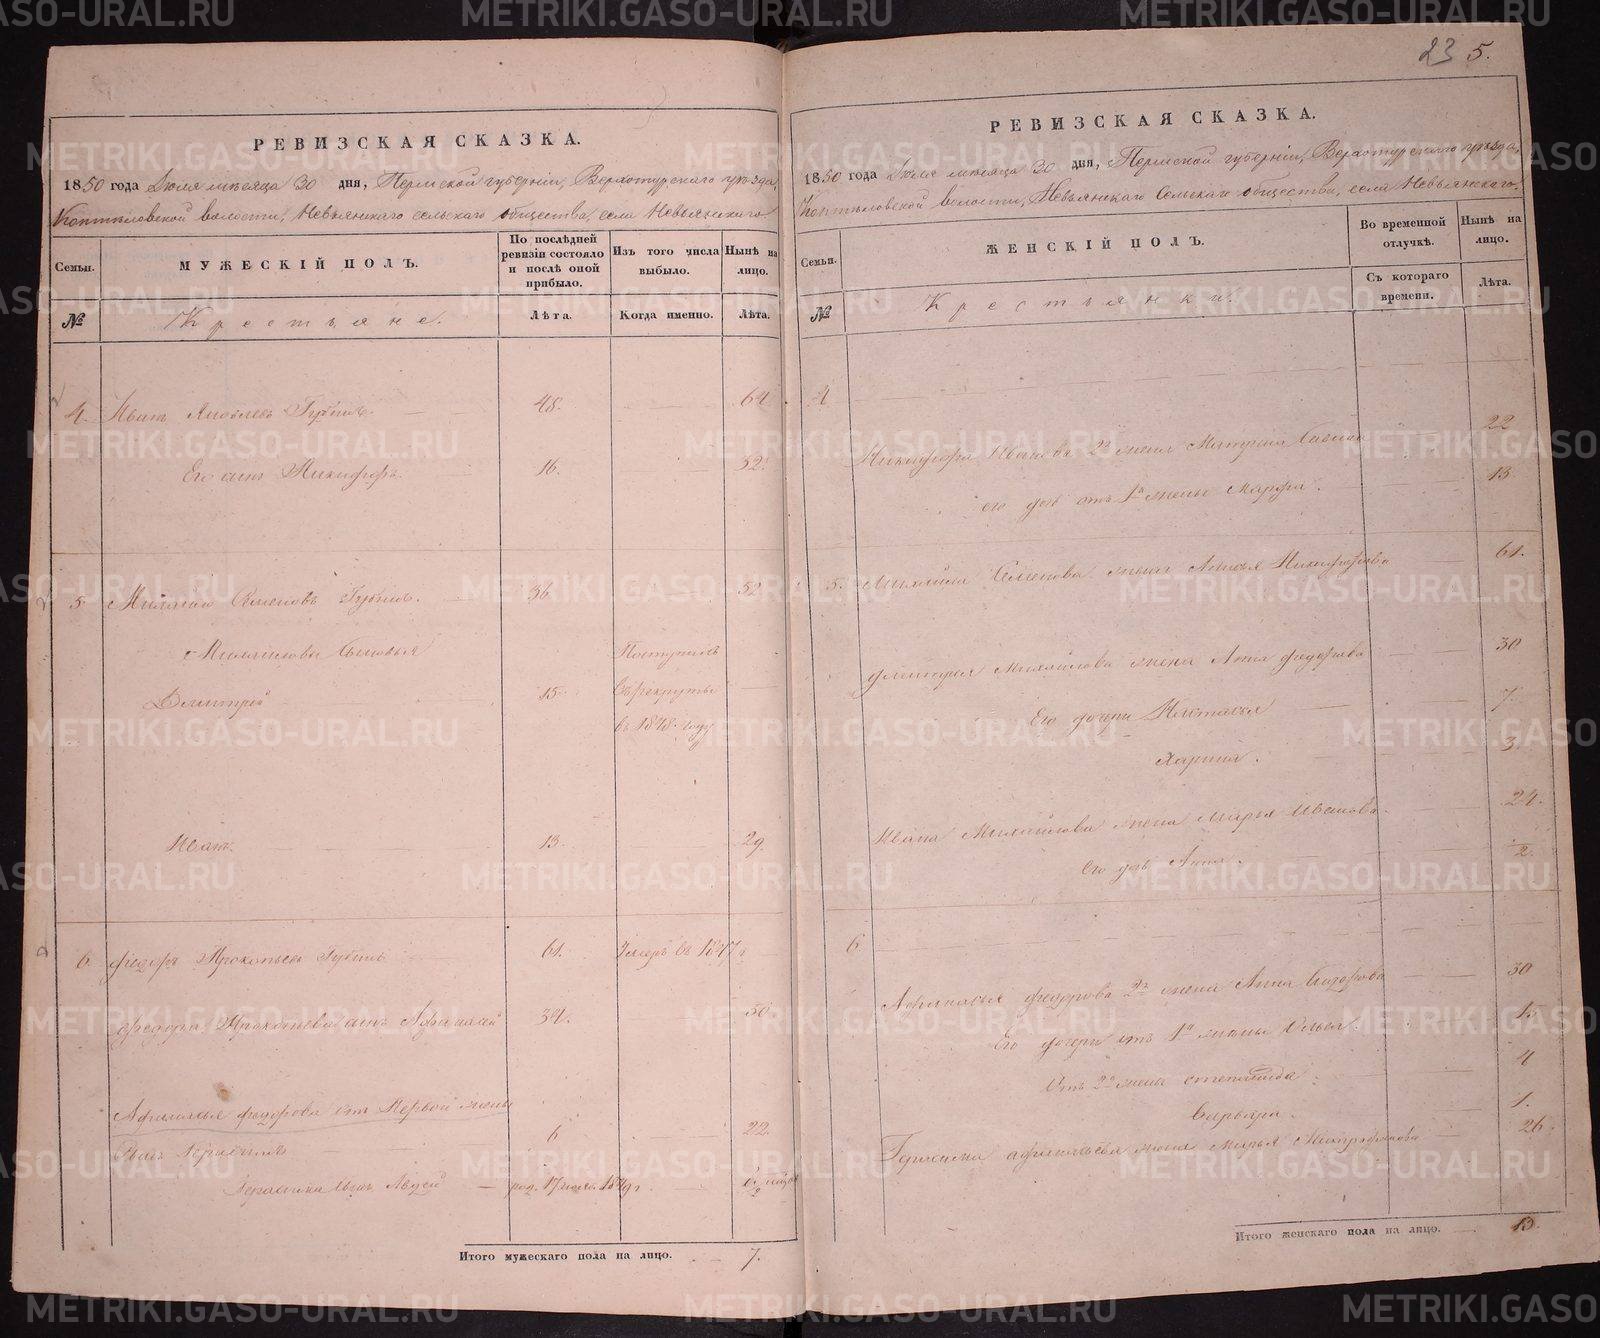 23 5.
РЕВИЗСКАЯ СКАЗКА.
1850 года Июля мѣсяца 30 дня, Пермской губерніи, Верхотурскаго уѣзда,
Коптѣловской волости, Невьянскаго сельскаго общества, села Невьянскаго
Семьи.
МУЖЕСКІЙ ПОЛЪ.
По послѣдней ревизіи состояло и послѣ оной прибыло.
Изъ того числа выбыло.
Нынѣ на лицо.
№
Крестьяне.
Лѣта.
Когда именно.
Лѣта.
4. Иванъ Яковлевъ Губинъ. 48. 64
Его сынъ Никифоръ 16. 32.
5 Михайло Семеновъ Губинъ. 36 52
Михайловы сыновья Поступилъ
Дмитрей 15. въ рекруты
въ 1848 году
Иванъ. 13. 29
6. Федоръ Прокопьевъ Губинъ 61. Умеръ въ 1847 г
Федора Прокопьева сынъ Афанасей 34. 50
Афанасья Федорова отъ Первой жены
6 22
Герасима сынъ Авдей 1849 г
Итого мужескаго пола на лицо. 7.
РЕВИЗСКАЯ СКАЗКА.
1850 года Июля мѣсяца 30 дня, Пермской губерніи, Верхотурскаго уѣзда,
Коптѣловской волости, Невьянскаго Сельскаго общества, села Невьянскаго.
Семьи.
ЖЕНСКІЙ ПОЛЪ.
Во временной отлучкѣ.
Нынѣ на лицо.
№
Крестьянки.
Съ котораго времени.
Лѣта.
4
Никифора Иванова 2я жена Матрена 22
его дочь отъ 1й жены Марфа. 13
5. Михайла Семенова жена Никифорова 61.
Дмитрея Михайлова жена Анна Федорова 30
Его дочери Настасья 7.
Харитина. 3.
Ивана Михайлова жена Марья Иванова 24.
его дочь Анна. 2.
6.
Афанасья Федорова 2я жена Анна Сидорова 30
Его дочери отъ 1й жены 15
Отъ 2й жены Степанида 4
Варвара. 1.
Герасима Афанасьева жена Марья Митрофанова 26.
Итого женскаго пола на лицо. 13.
METRIKI.GASO-URAL.RU